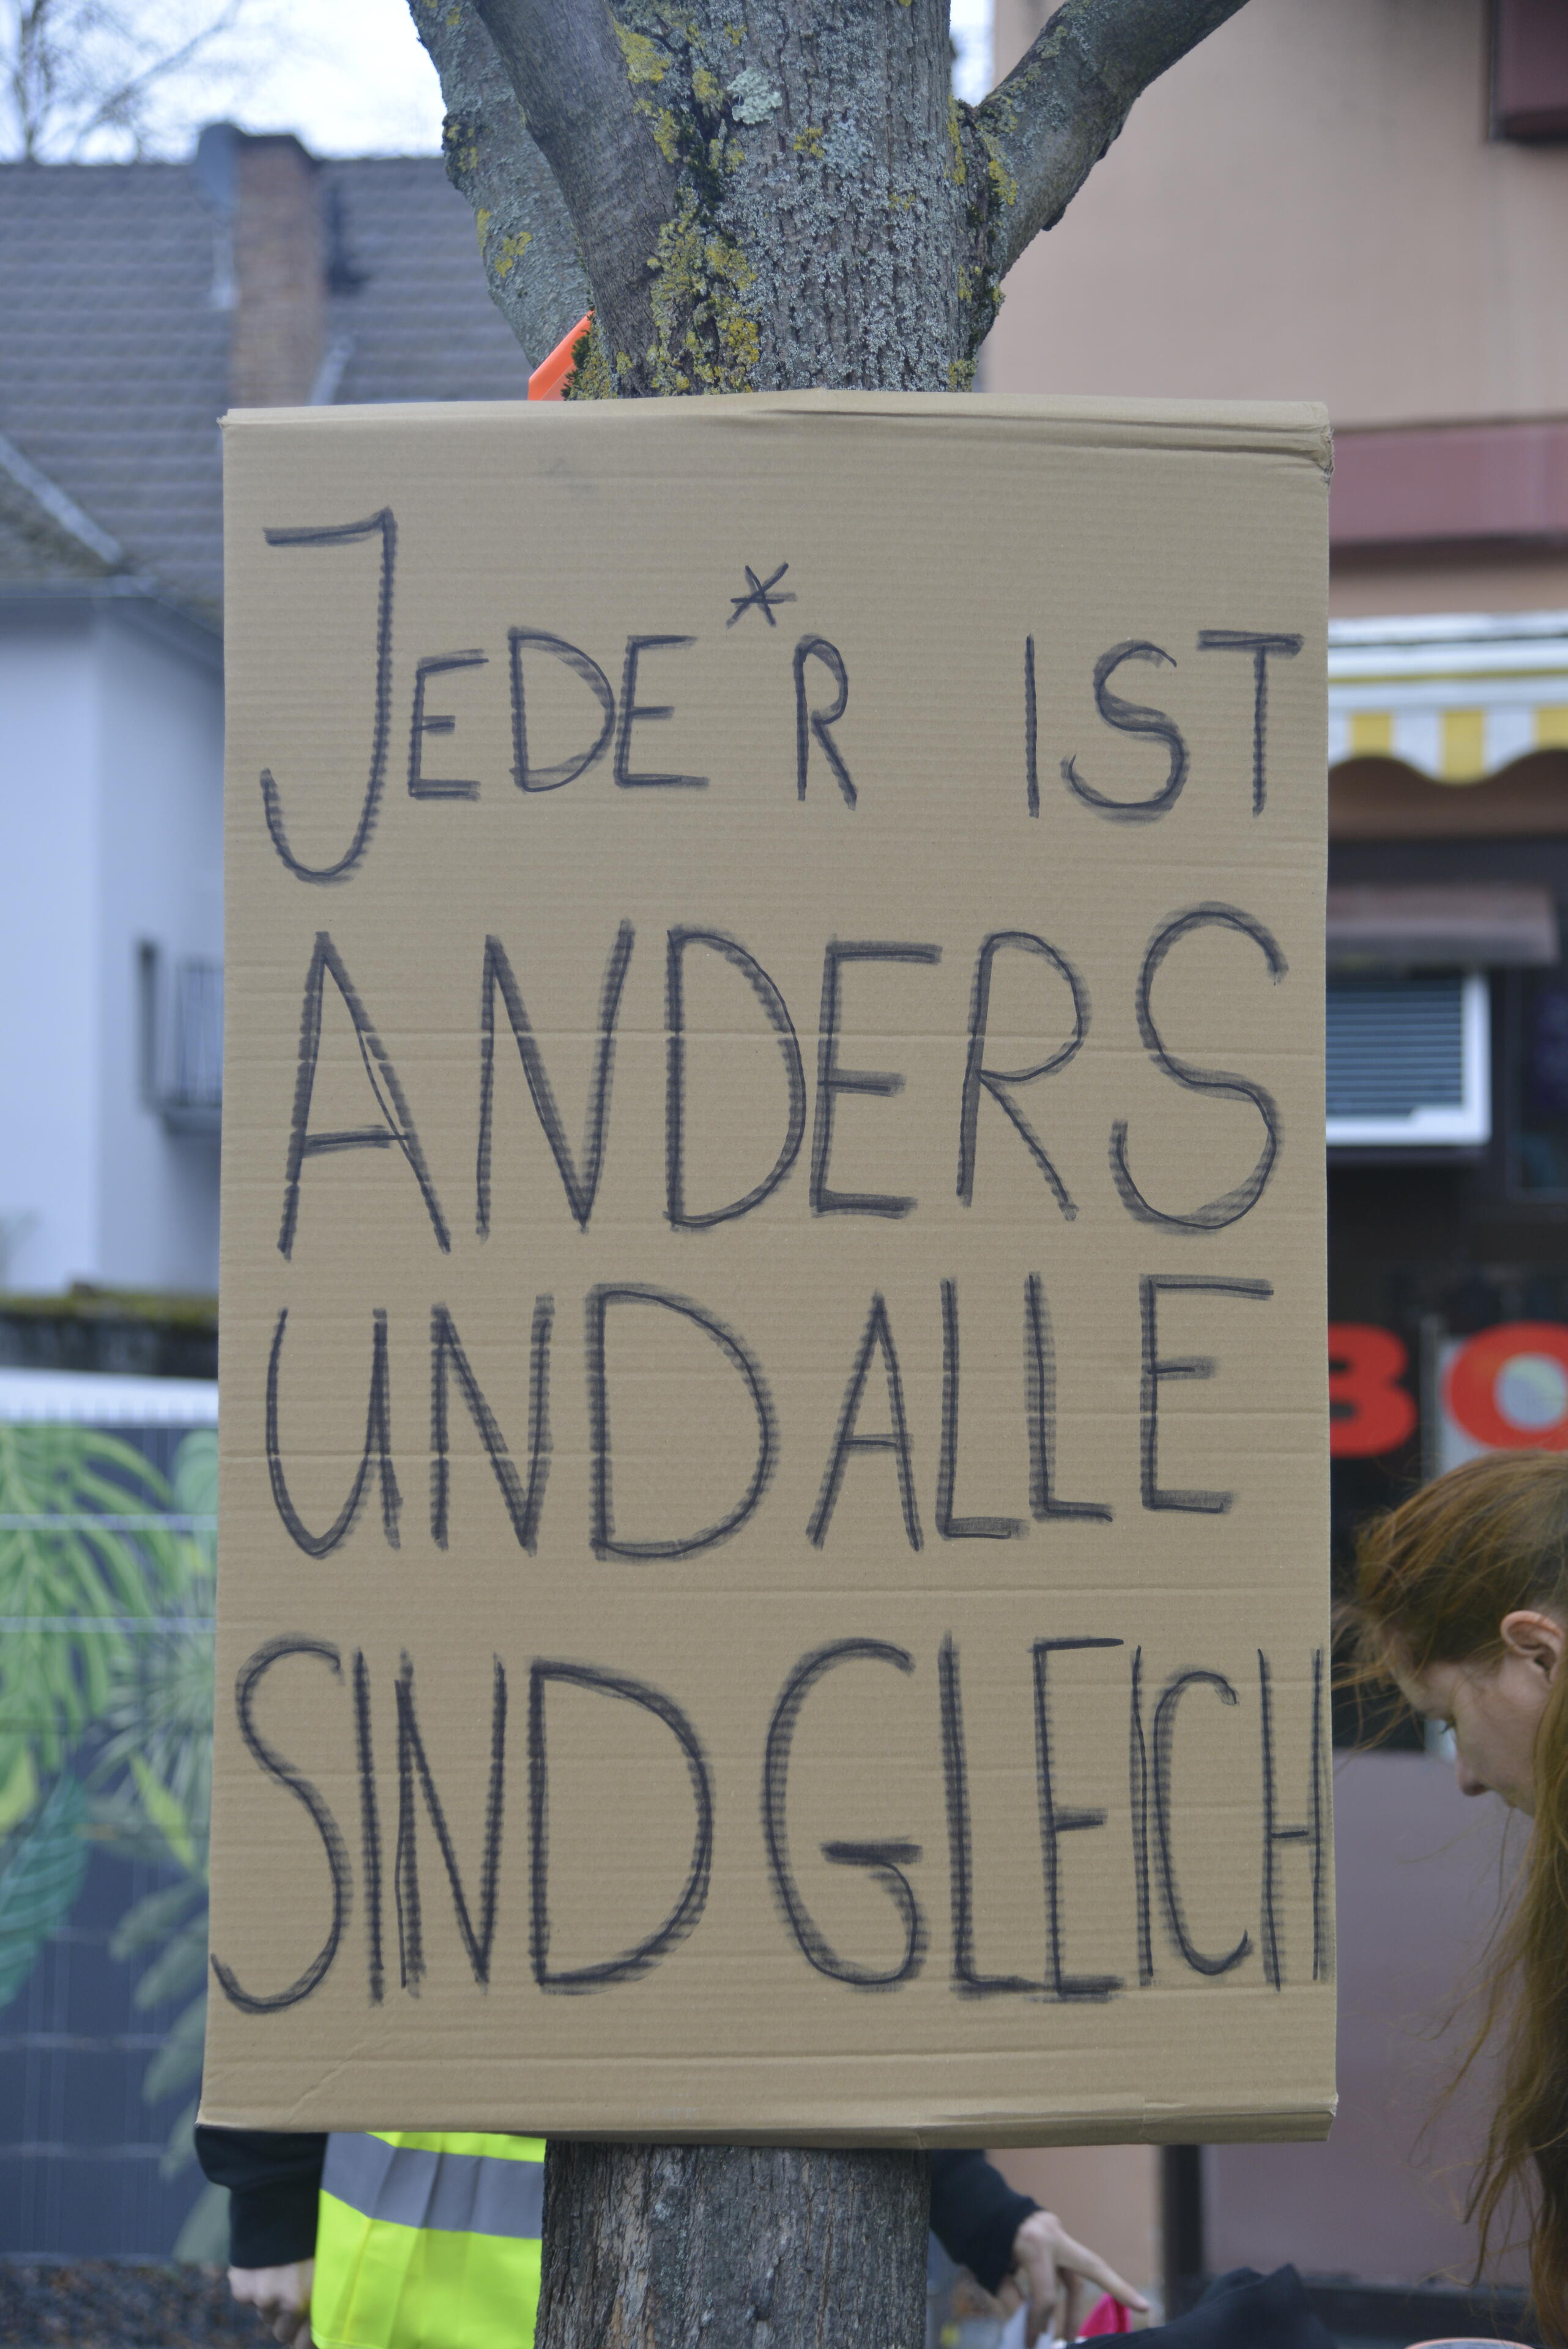 JEDE*R IST
ANDERS
UND ALLE
SIND GLEICH
BO